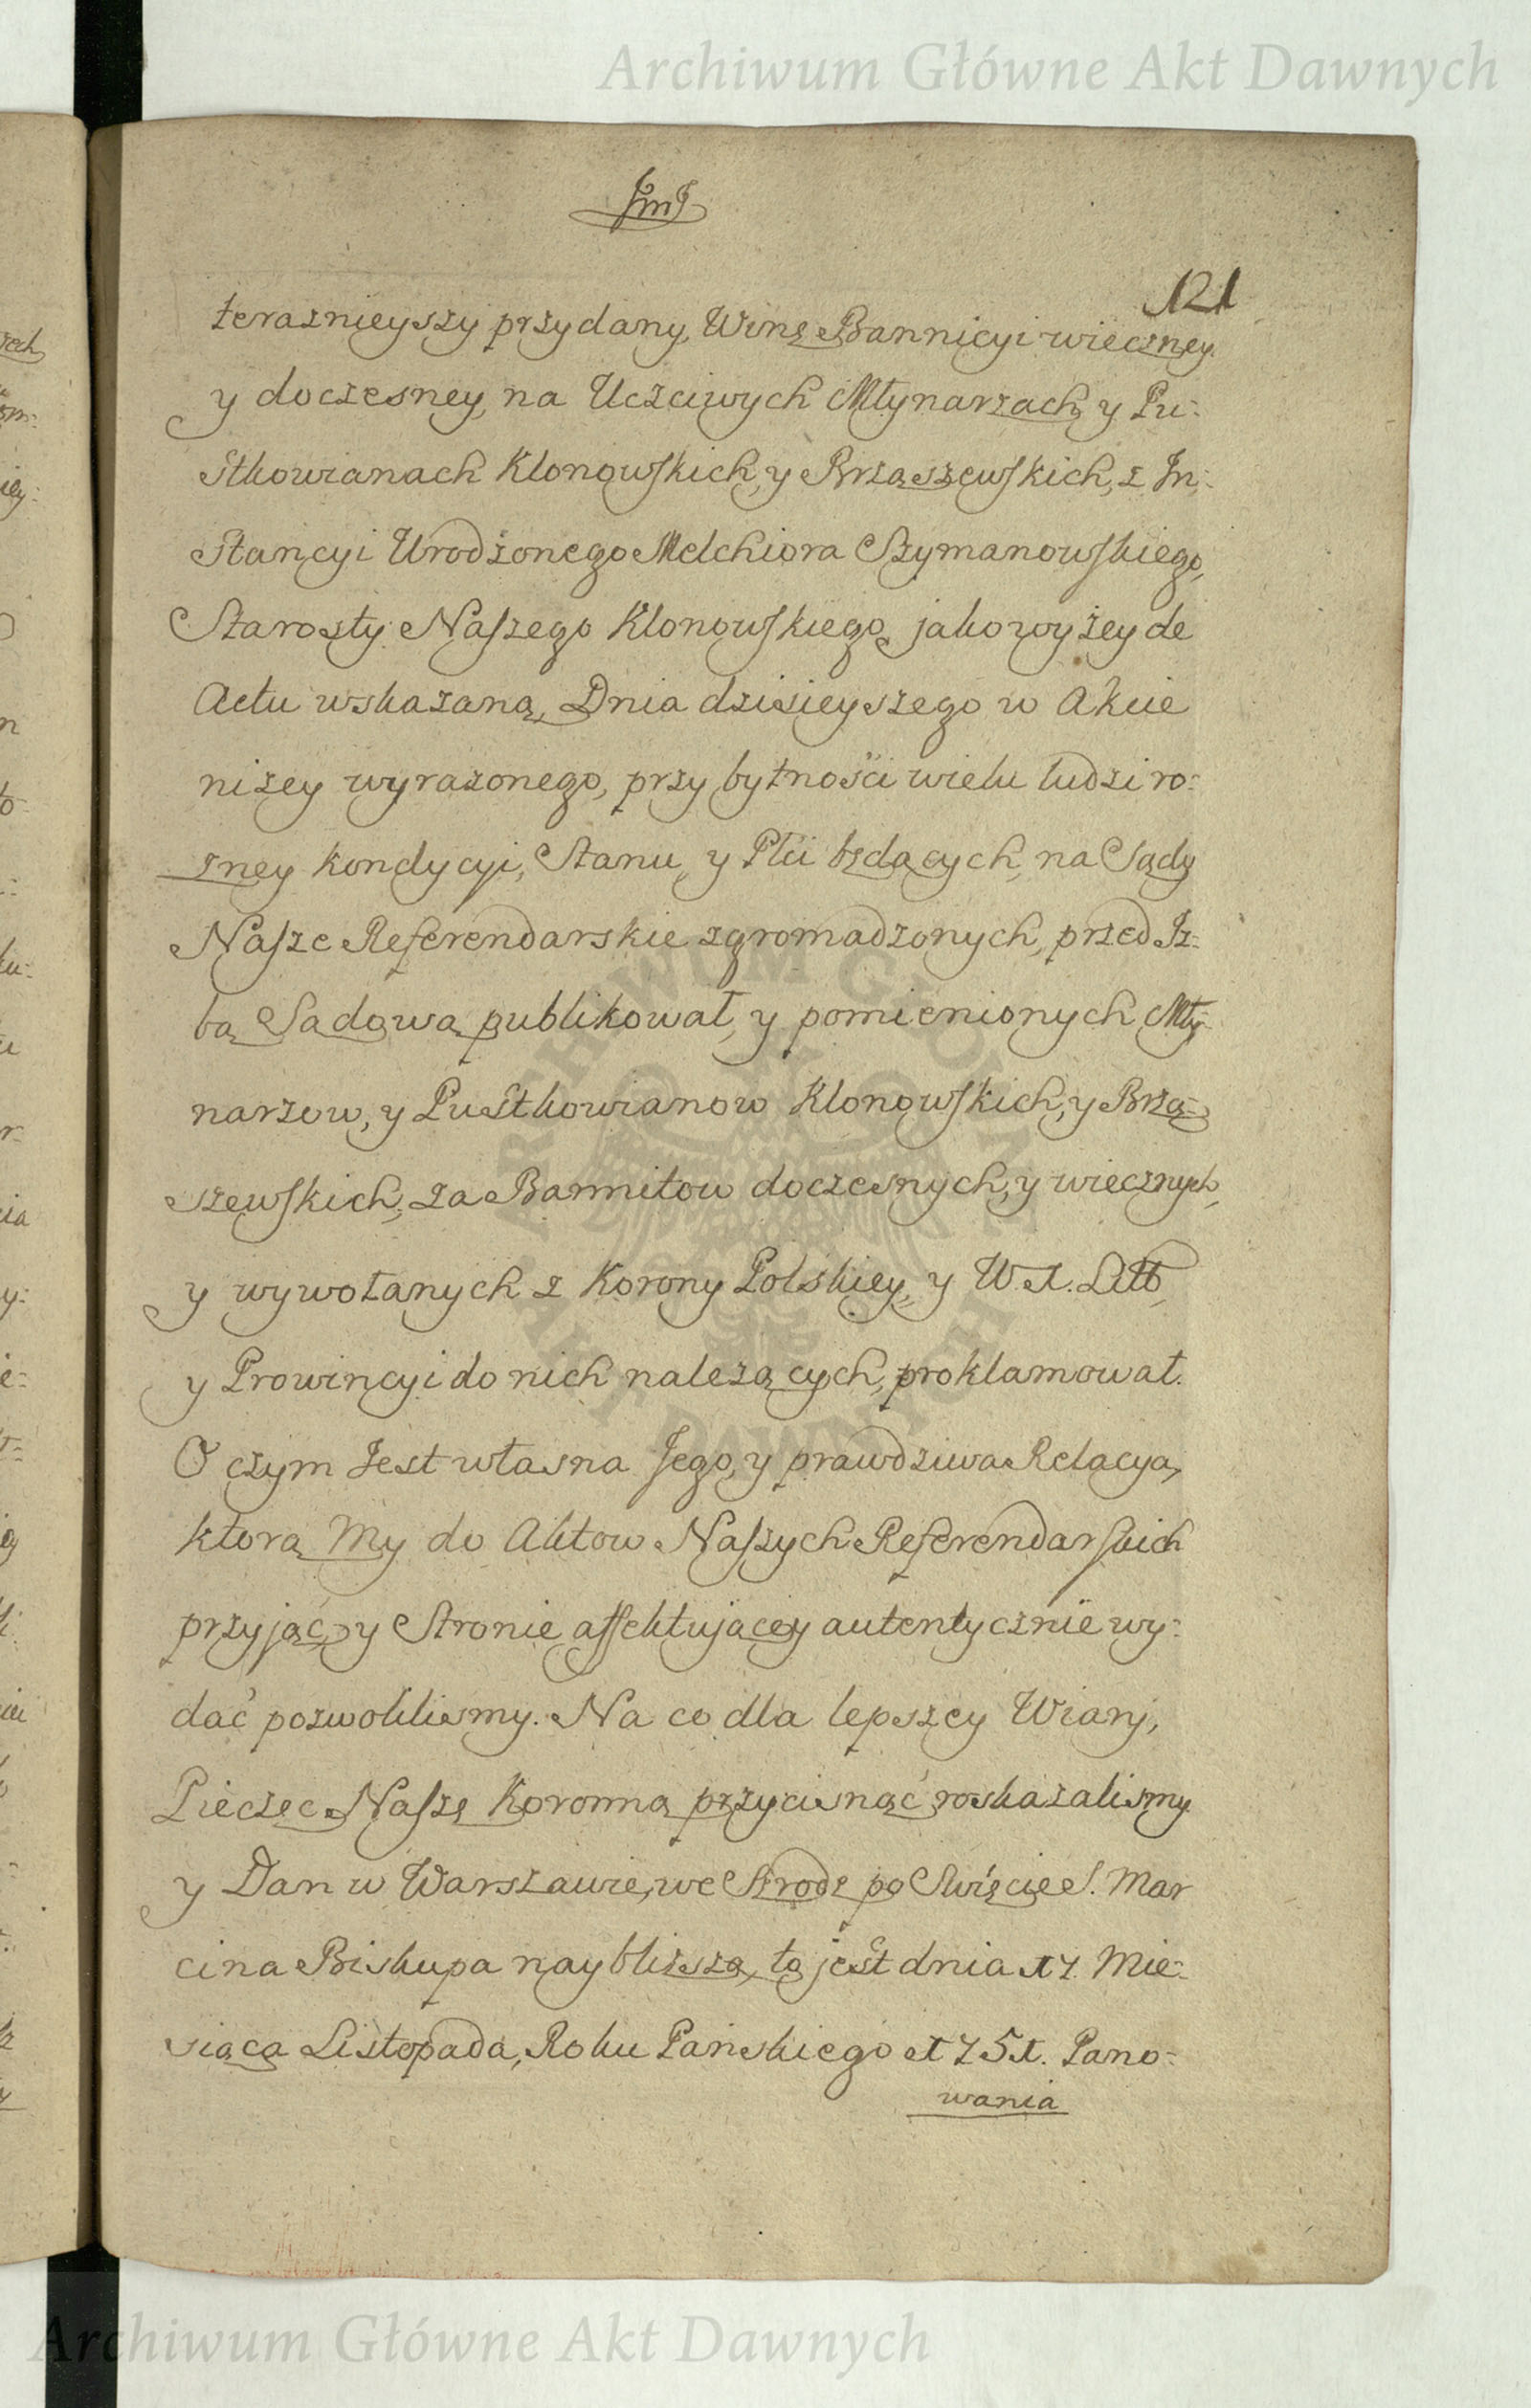 Archiwum Główne Akt Dawnych
JmJ
121
teraznieyszy przydany, Winę Bannicyi wieczney
y doczesney, na Uczciwych Młynarzach, y Pu-
stkowianach Klonowskich, y Brząszewskich, z In-
stancyi Urodzonego Melchiora Szymanowskiego,
Starosty Naszego Klonowskiego, jako wyżey de
Actu wskazaną, Dnia dzisieyszego w Akcie
niżey wyrażonego, przy bytności wielu ludzi ro-
zney kondycyi, Stanu, y Płci będących, na Sądy
Nasze Referendarskie zgromadzonych, przed Iz-
bą Sadową publikował, y pomienionych Mły-
narzow, y Pustkowianow Klonowskich, y Brzą-
szewskich, za Bannitow doczesnych, y wiecznych,
y wywołanych z Korony Polskiey, y W. X. Litt
y Prowincyi do nich należących, proklamował.
O czym Jest własna Jego, y prawdziwa Relacya,
ktorą My do Aktow Naszych Referendarskich
przyjąć, y Stronie affektującey autentycznie wy-
dać pozwoliliśmy. Na co dla lepszey Wiary,
Pieczęć Naszę Koronną przycisnąć roskazaliśmy
y Dan w Warszawie, we Srodę po Swięcie S. Mar
cina Biskupa naybliższą, to jest dnia 17. Mie-
siąca Listopada, Roku Pańskiego 1751. Pano-
wania
ARCHIWUM GŁÓWNE AKT DAWNYCH
Archiwum Główne Akt Dawnych